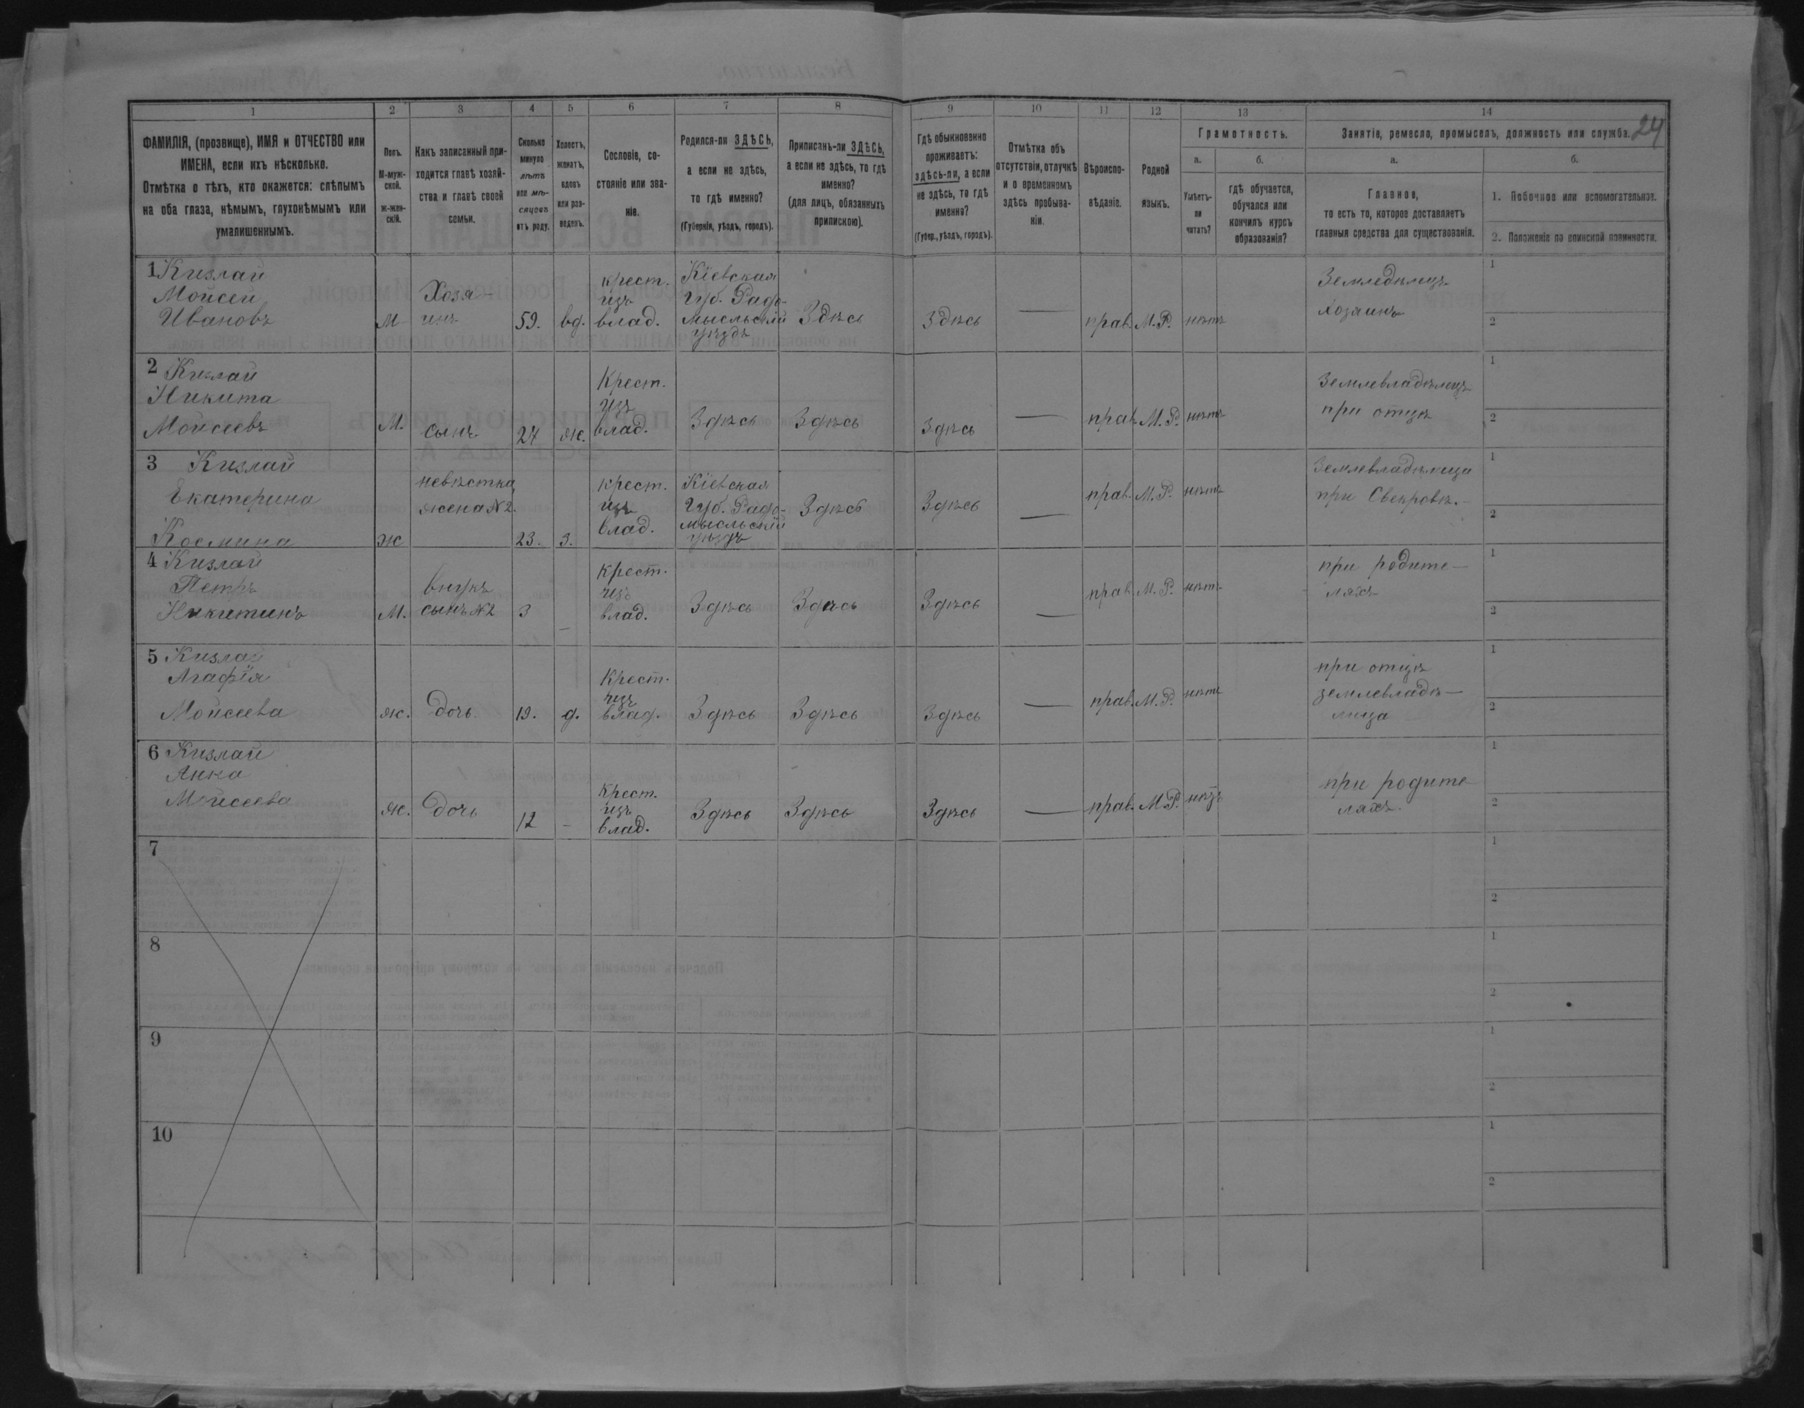 24
1 2 3 4 5 6 7 8 9 10 11 12 13 14
ФАМИЛІЯ, (прозвище), ИМЯ и ОТЧЕСТВО или
ИМЕНА, если ихъ нѣсколько.
Отмѣтка о тѣхъ, кто окажется: слѣпымъ
на оба глаза, нѣмымъ, глухонѣмымъ или
умалишеннымъ.
Полъ.
М-муж-
ской.
Ж-жен-
скій.
Какъ записанный при-
ходится главѣ хозяй-
ства и главѣ своей
семьи.
Сколько
минуло
лѣтъ
или мѣ-
сяцевъ
отъ роду.
Холостъ,
женатъ,
вдовъ
или раз-
веденъ.
Сословіе, со-
стояніе или зва-
ніе.
Родился-ли ЗДѢСЬ,
а если не здѣсь,
то гдѣ именно?
(Губернія, уѣздъ, городъ).
Приписанъ-ли ЗДѢСЬ,
а если не здѣсь, то гдѣ
именно?
(для лицъ, обязанныхъ
припискою).
Гдѣ обыкновенно
проживаетъ:
здѣсь-ли, а если
не здѣсь, то гдѣ
именно?
(Губер., уѣздъ, городъ).
Отмѣтка объ
отсутствіи, отлучкѣ
и о временномъ
здѣсь пребыва-
ніи.
Вѣроиспо-
вѣданіе.
Родной
языкъ.
Грамотность.
а.
Умѣетъ-
ли
читать?
б.
гдѣ обучается,
обучался или
кончилъ курсъ
образованія?
Занятіе, ремесло, промыселъ, должность или служба.
а.
Главное,
то есть то, которое доставляетъ
главныя средства для существованія.
б.
1. Побочное или вспомогательное.
2. Положеніе по воинской повинности.
1 Кизлай
Мойсей
Ивановъ
М
Хозя-
инъ
59.
вд.
крест.
изъ
влад.
Кіевская
Губ. Радо-
мысльскій
уѣздъ
Здѣсь
Здѣсь
—
прав.
М.Р.
нѣтъ
Земледѣлецъ
хозяинъ
1
2
2 Кизлай
Никита
Мойсеевъ
М.
сынъ
24
ж.
Крест.
изъ
влад.
Здѣсь
Здѣсь
Здѣсь
—
прав.
М.Р.
нѣтъ
Землевладѣлецъ
при отцѣ
1
2
3 Кизлай
Екатерина
Космина
ж
невѣстка,
жена №2
23.
з.
крест.
изъ
влад.
Кіевская
Губ. Радо-
мысльскій
уѣздъ
Здѣсь
Здѣсь
—
прав.
М.Р.
нѣтъ
Землевладѣлица
при Свекровѣ.
1
2
4 Кизлай
Петръ
Никитинъ
М.
внукъ
сынъ №2
3
—
крест.
изъ
влад.
Здѣсь
Здѣсь
Здѣсь
—
прав.
М.Р.
нѣтъ
при родите-
ляхъ
1
2
5 Кизлай
Агафія
Мойсеева
ж.
дочь
19.
д.
Крест.
изъ
влад.
Здѣсь
Здѣсь
Здѣсь
—
прав.
М.Р.
нѣтъ
при отцѣ
землевладѣ-
лица
1
2
6 Кизлай
Анна
Мойсеева
ж.
дочь
12
—
Крест.
изъ
влад.
Здѣсь
Здѣсь
Здѣсь
—
прав.
М.Р.
нѣтъ
при родите
ляхъ.
1
2
7
1
2
8
1
2
9
1
2
10
1
2